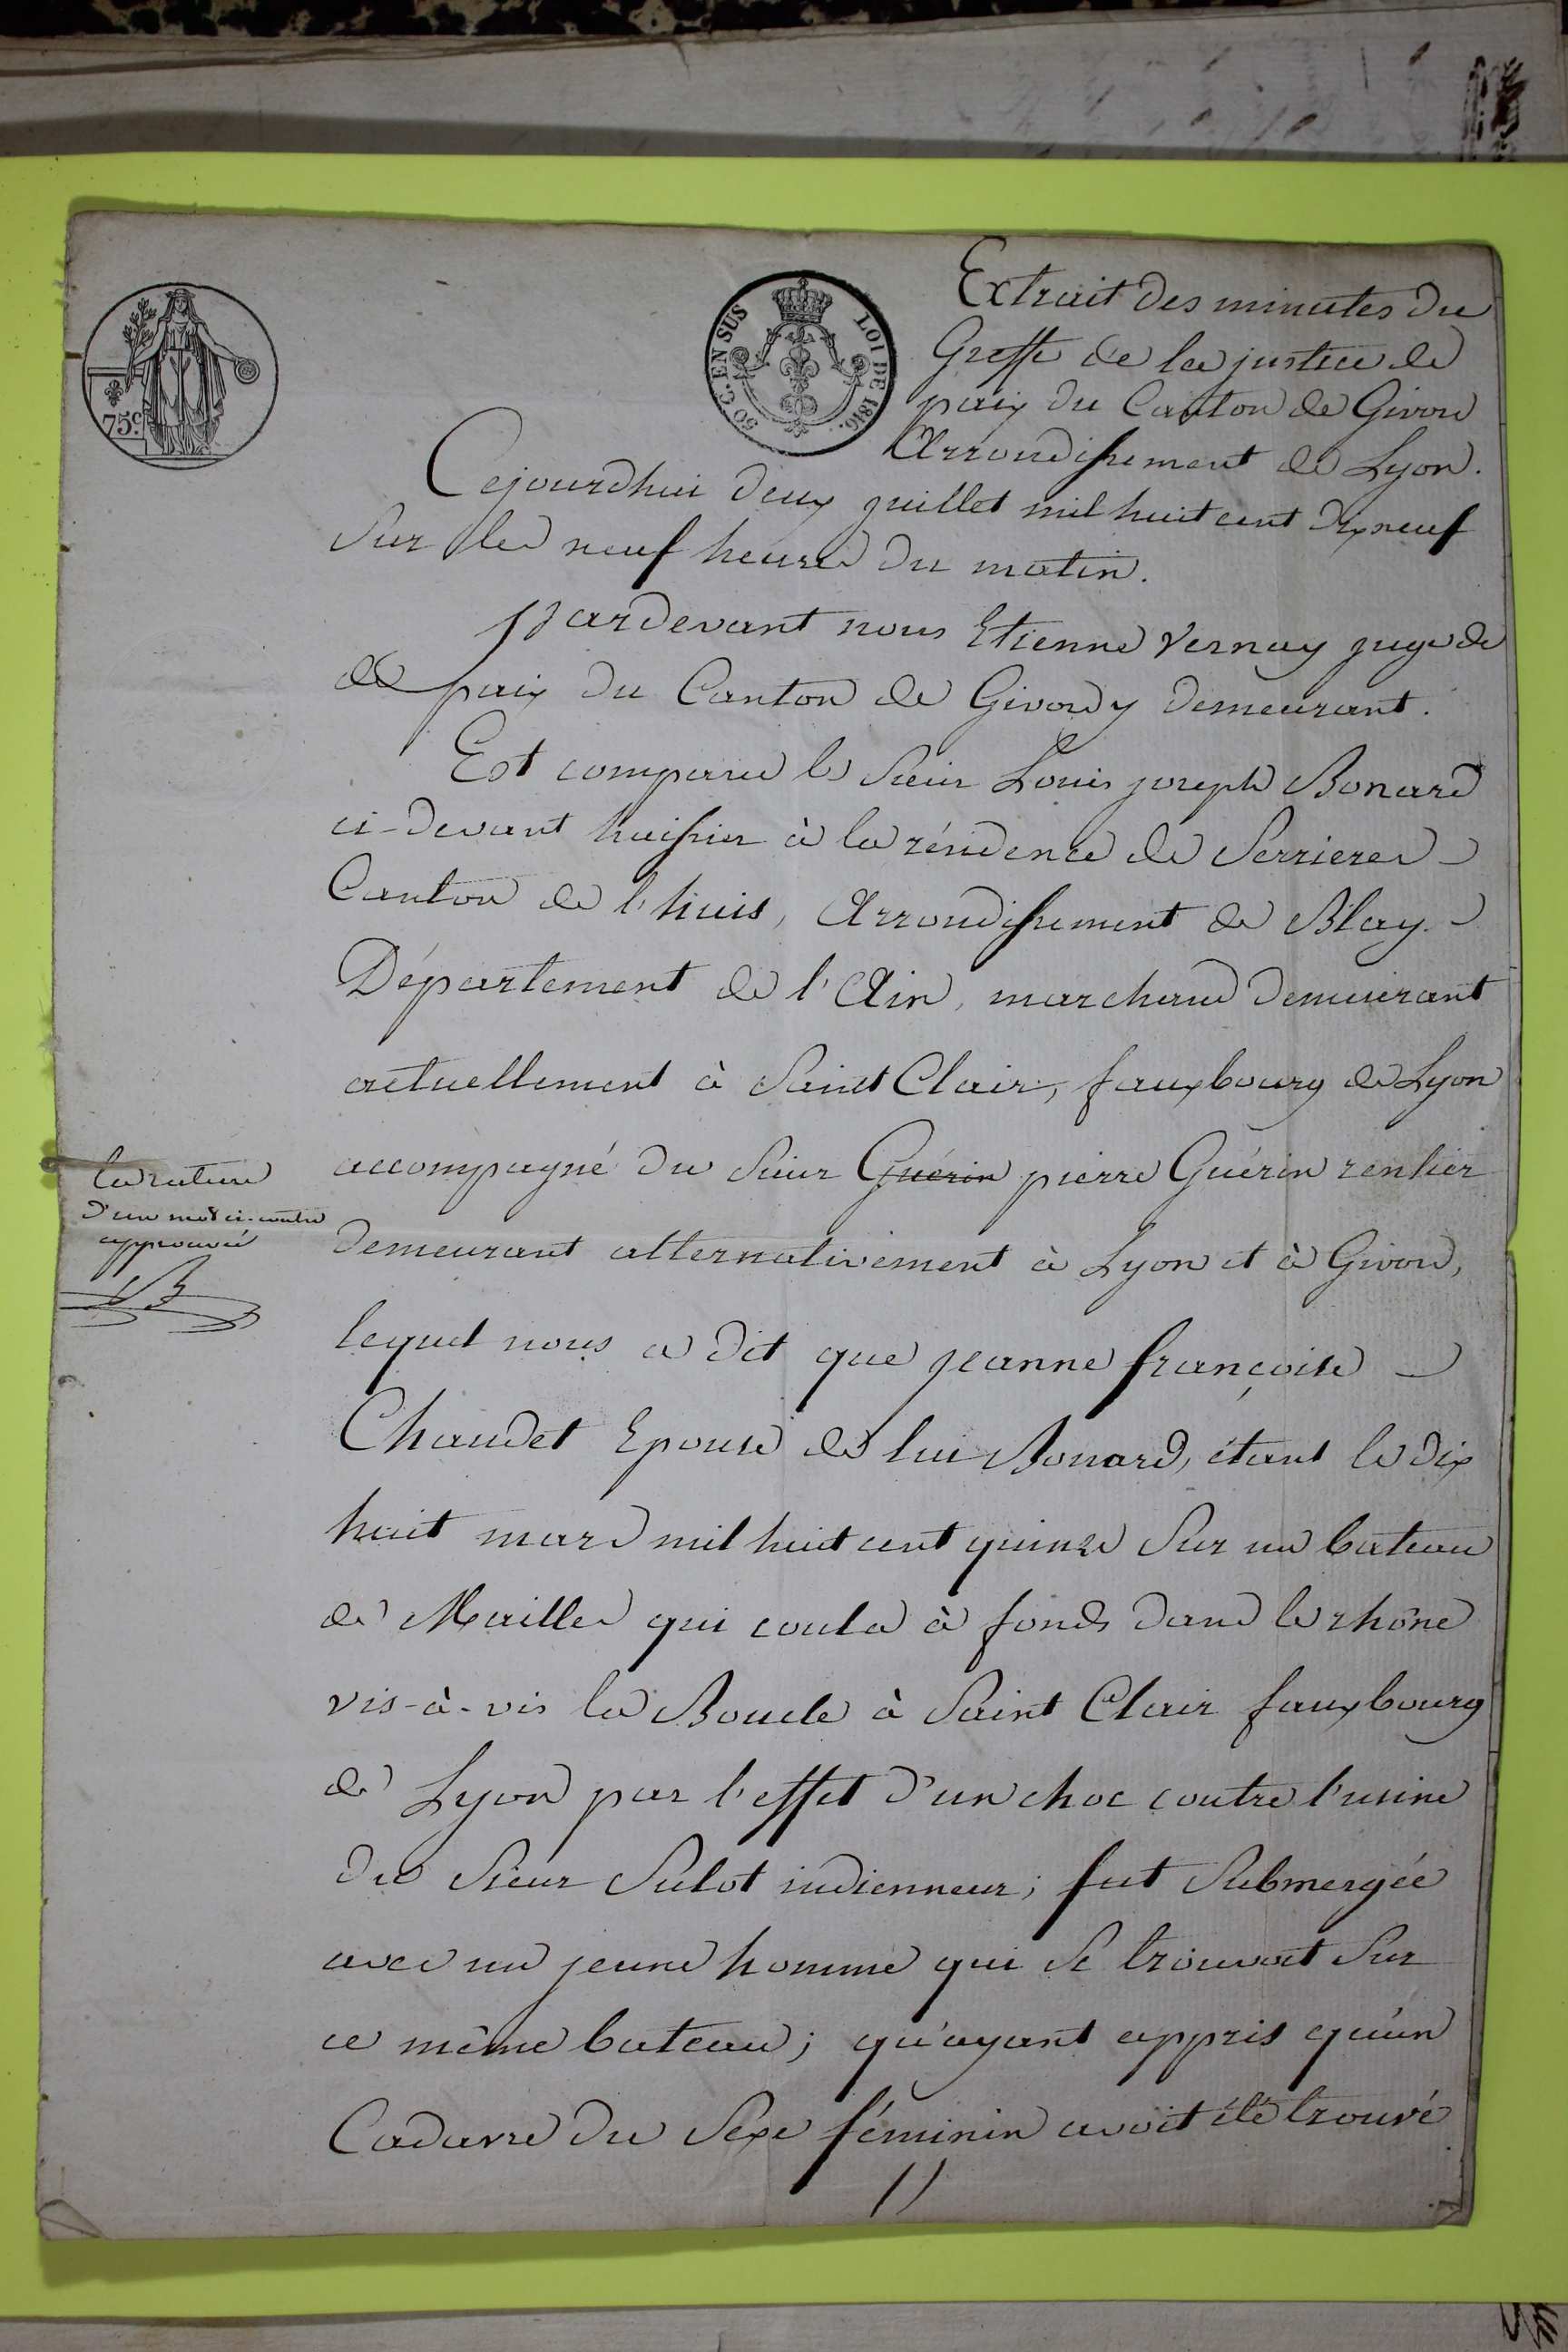 75c.
50 C. EN SUS LOI DE 1816.
Extrait des minutes du
Greffe de la justice de
paix du Canton de Givors
Arrondissement de Lyon.
Cejourdhui deux juillet mil huit cent dix neuf
Sur les neuf heures du matin.
Pardevant nous Etienne Vernay juge de
de paix du Canton de Givors y demeurant.
Est comparu le Sieur Louis joseph Bonard
ci-devant huissier à la résidence de Serrieres
Canton de l'huis, Arrondissement de Blay
Département de l'Ain, marchand demeurant
actuellement à Saint Clair, fauxbourg de Lyon
accompagné du Sieur Guérin pierre Guérin rentier
demeurant alternativement à Lyon et à Givors,
lequel nous a dit que jeanne françoise
Chaudet Epouse de lui Bonard, étant le dix
huit mars mil huit cent quinze Sur un bateau
de Mailles qui coula à fonds dans le rhône
vis-à-vis la Boucle à Saint Clair fauxbourg
de Lyon par l'effet d'un choc contre l'usine
du Sieur Sulot indienneur; fut Submergée
avec un jeune homme qui se trouvoit Sur
ce même bateau; qu'ayant appris qu'un
Cadavre du Sexe féminin avoit été trouvé
la rature
d'un mot ci-contre
approuvée